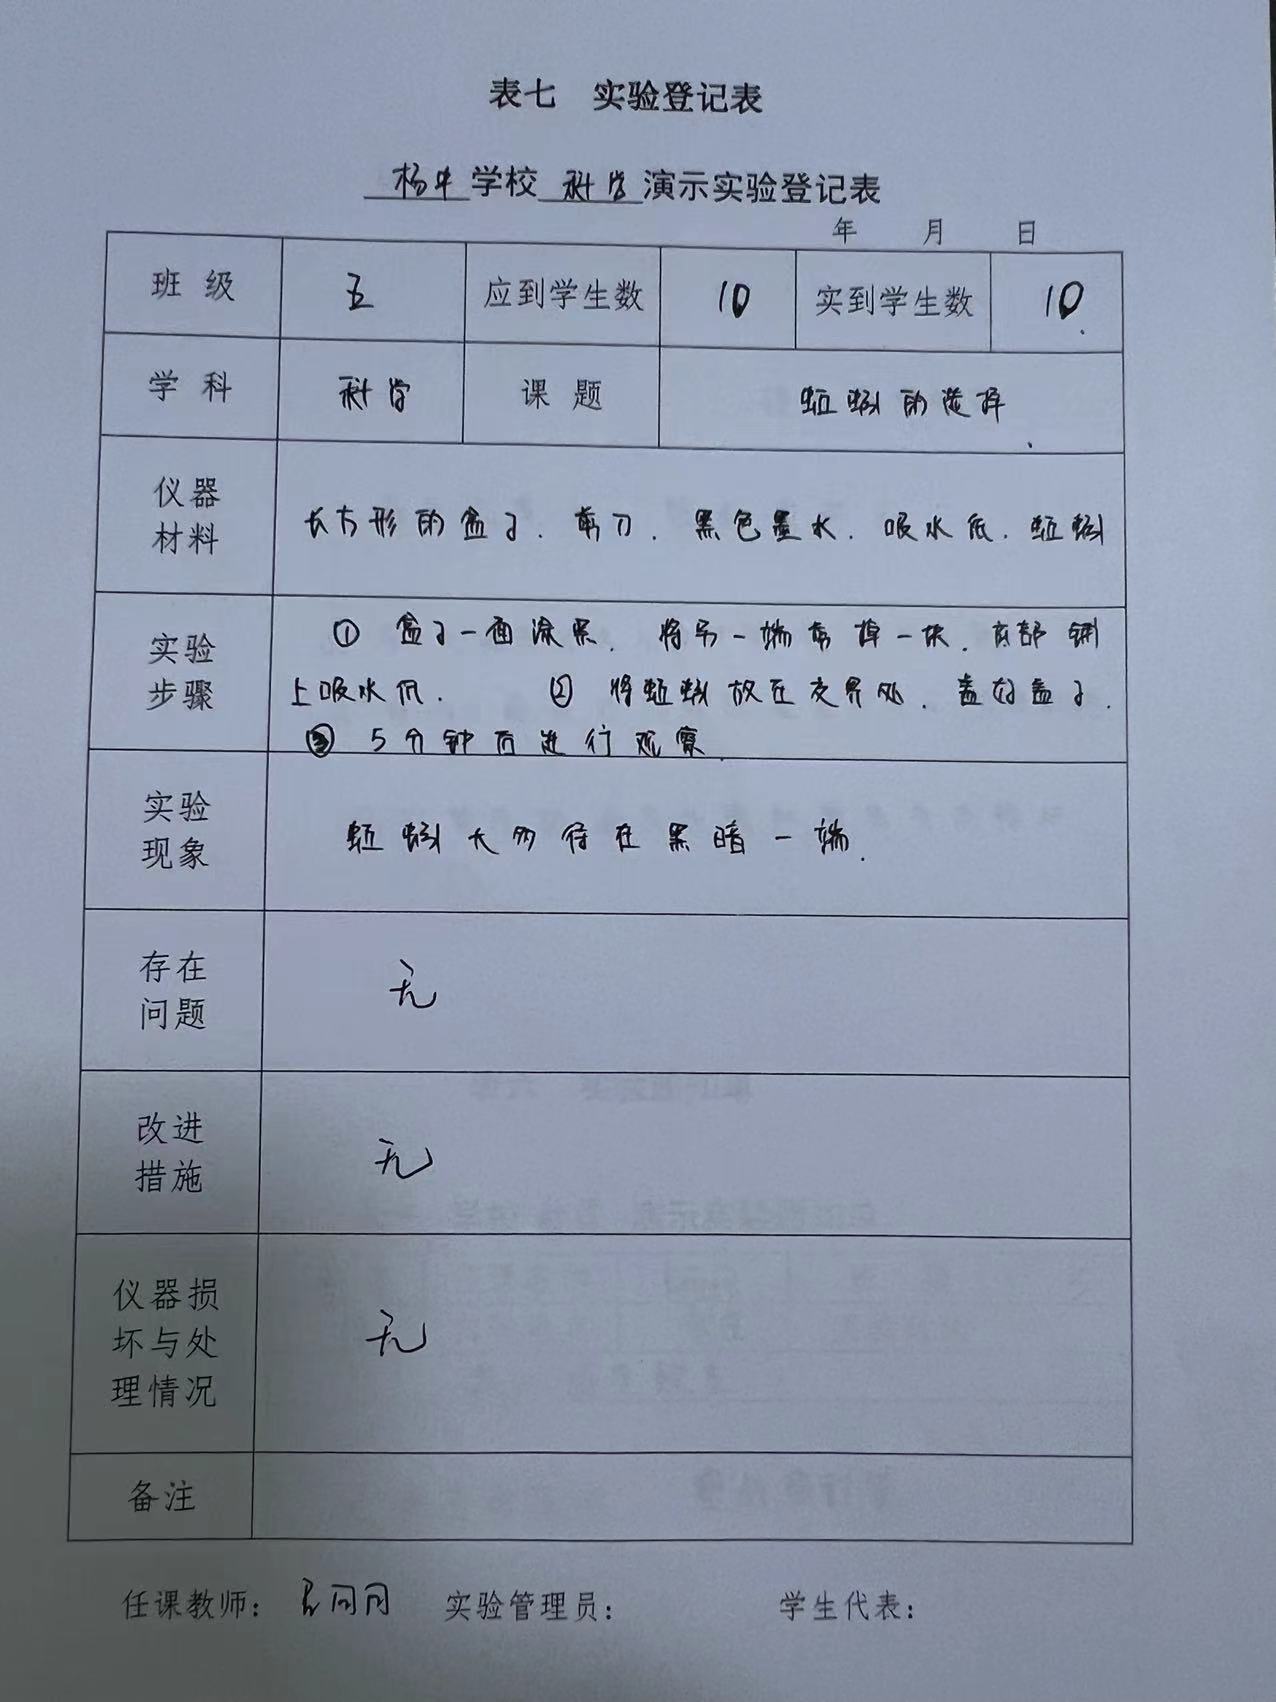 表七 实验登记表
杨牛学校科学演示实验登记表
年 月 日
班 级 五 应到学生数 10 实到学生数 10
学 科 科学 课 题 蚯蚓的选择
仪器
材料
长方形的盒子、剪刀、黑色墨水、吸水纸、蚯蚓
实验
步骤
① 盒子一面涂黑、将另一端剪掉一块、底部铺
上吸水纸. ② 将蚯蚓放在交界处、盖好盖子.
③ 5分钟后进行观察.
实验
现象
蚯蚓大多待在黑暗一端.
存在
问题
无
改进
措施
无
仪器损
坏与处
理情况
无
备注
任课教师： 同同 实验管理员： 学生代表：